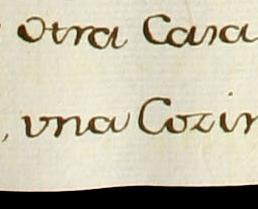 otra Casa
, vna Cozin